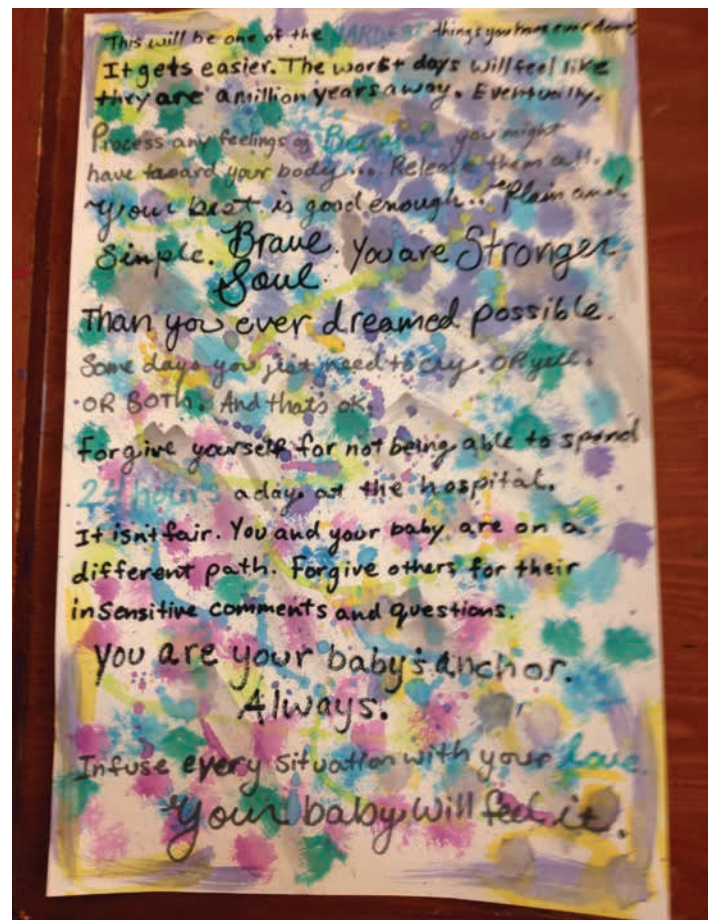 This will be one of the HARDEST things you have ever done.
It gets easier. The worst days will feel like
they are a million years away. Eventually.
Process any feelings of Betrayal you might
have toward your body... Release them all.
Your best is good enough.. Plain and
Simple. Brave Soul. You are Stronger
Than you ever dreamed possible.
Some days you just need to cry. OR yell.
OR BOTH. And that's ok.
Forgive yourself for not being able to spend
24 hours a day at the hospital.
It isn't fair. You and your baby are on a
different path. Forgive others for their
insensitive comments and questions.
You are your baby's anchor.
Always.
Infuse every situation with your love.
Your baby will feel it.